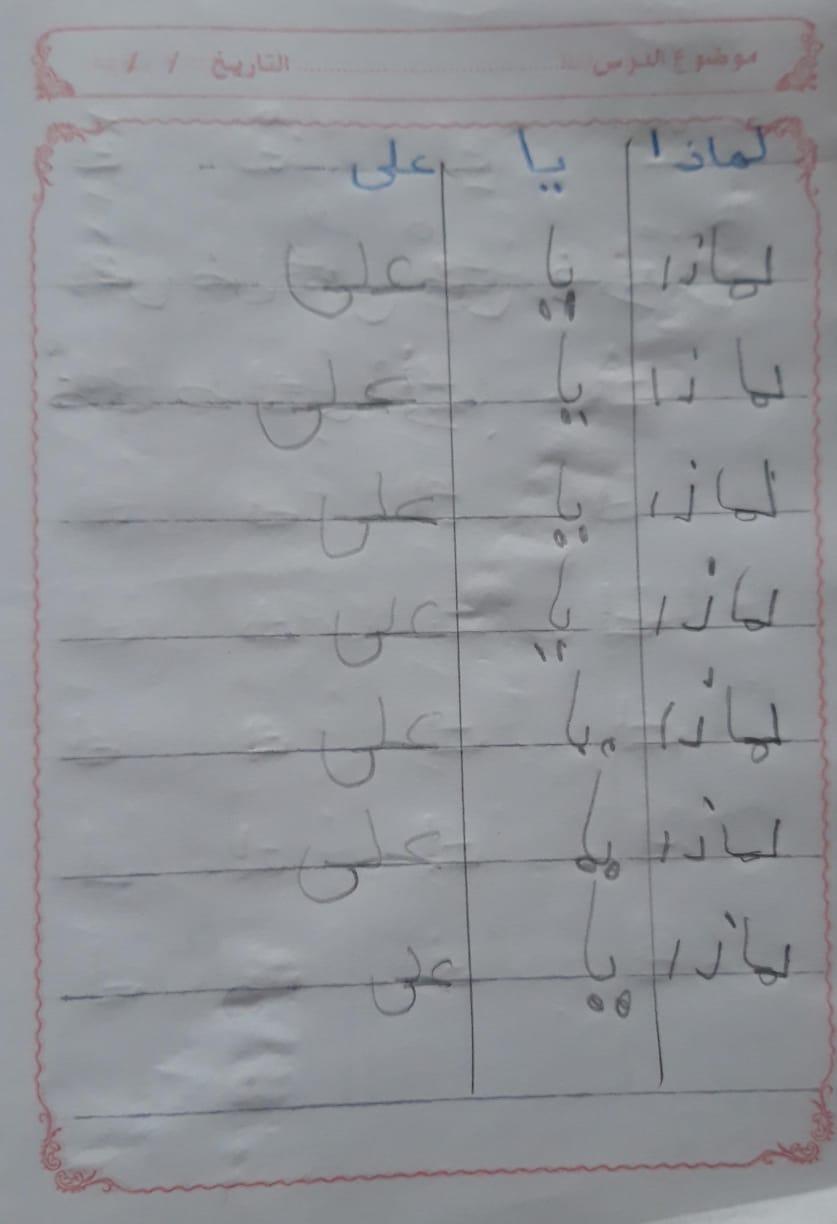 موضوع الدرس ........................ التاريخ / /
لماذا يا على
لماذا يا على
لماذا يا على
لماذا يا على
لماذا يا على
لماذا يا على
لماذا يا على
لماذا يا على